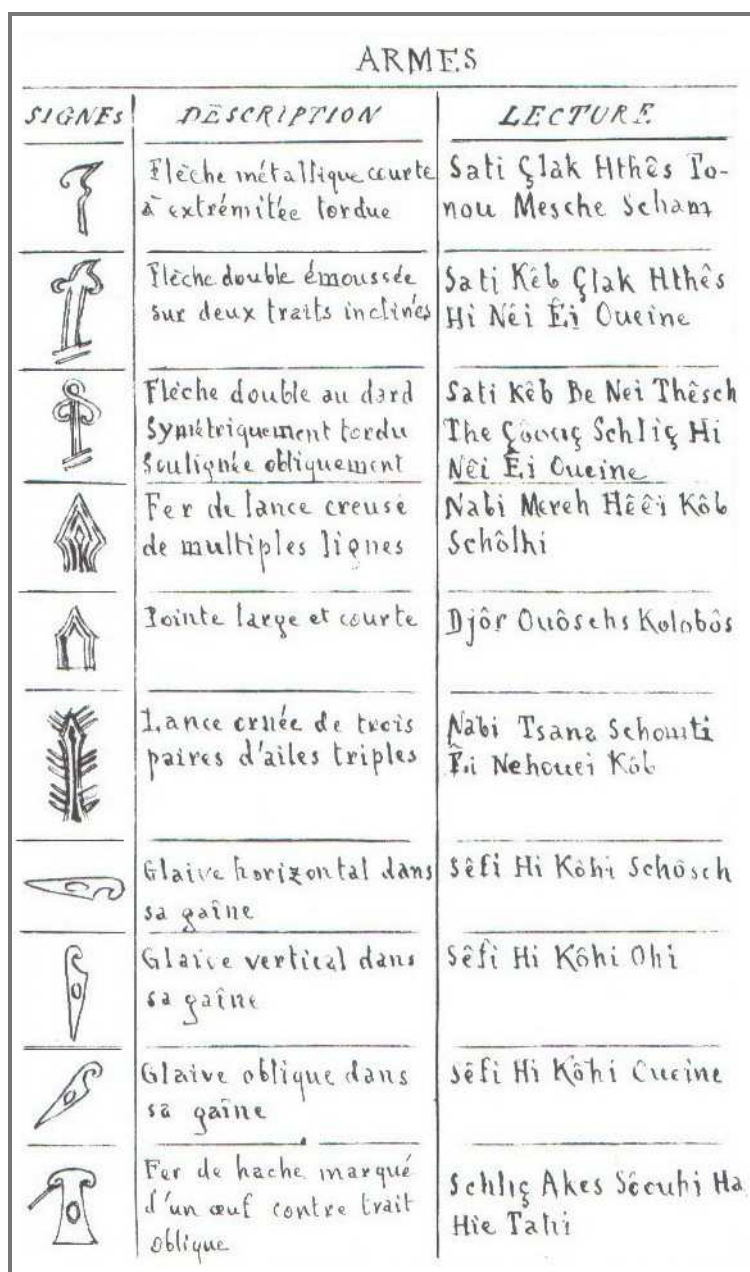 ARMES
SIGNES DESCRIPTION LECTURE
Flèche métallique courte
à extrémitée tordue
Sati Çlak Hthês To-
nou Mesche Scham
Flèche double émoussée
sur deux traits inclinés
Sati Kêb Çlak Hthês
Hi Nêi Êi Oueine
Flèche double au dard
Symétriquement tordu
Soulignée obliquement
Sati Kêb Be Nei Thêsch
The Schliç Hi
Nêi Êi Oueine
Fer de lance creusé
de multiples lignes
Nabi Mereh Hêêi Kôb
Schôlhi
Pointe large et courte
Djôr Ouôschs Kolobôs
Lance ornée de trois
paires d'ailes triples
Nabi Tsana Schomti
Êi Nehouei Kôb
Glaive horizontal dans
sa gaîne
Sêfi Hi Kôhi Schôsch
Glaive vertical dans
sa gaîne
Sêfi Hi Kôhi Ohi
Glaive oblique dans
sa gaîne
Sêfi Hi Kôhi Oueine
Fer de hache marqué
d'un œuf contre trait
oblique
Schliç Akes Sôouhi Ha
Hie Tahi